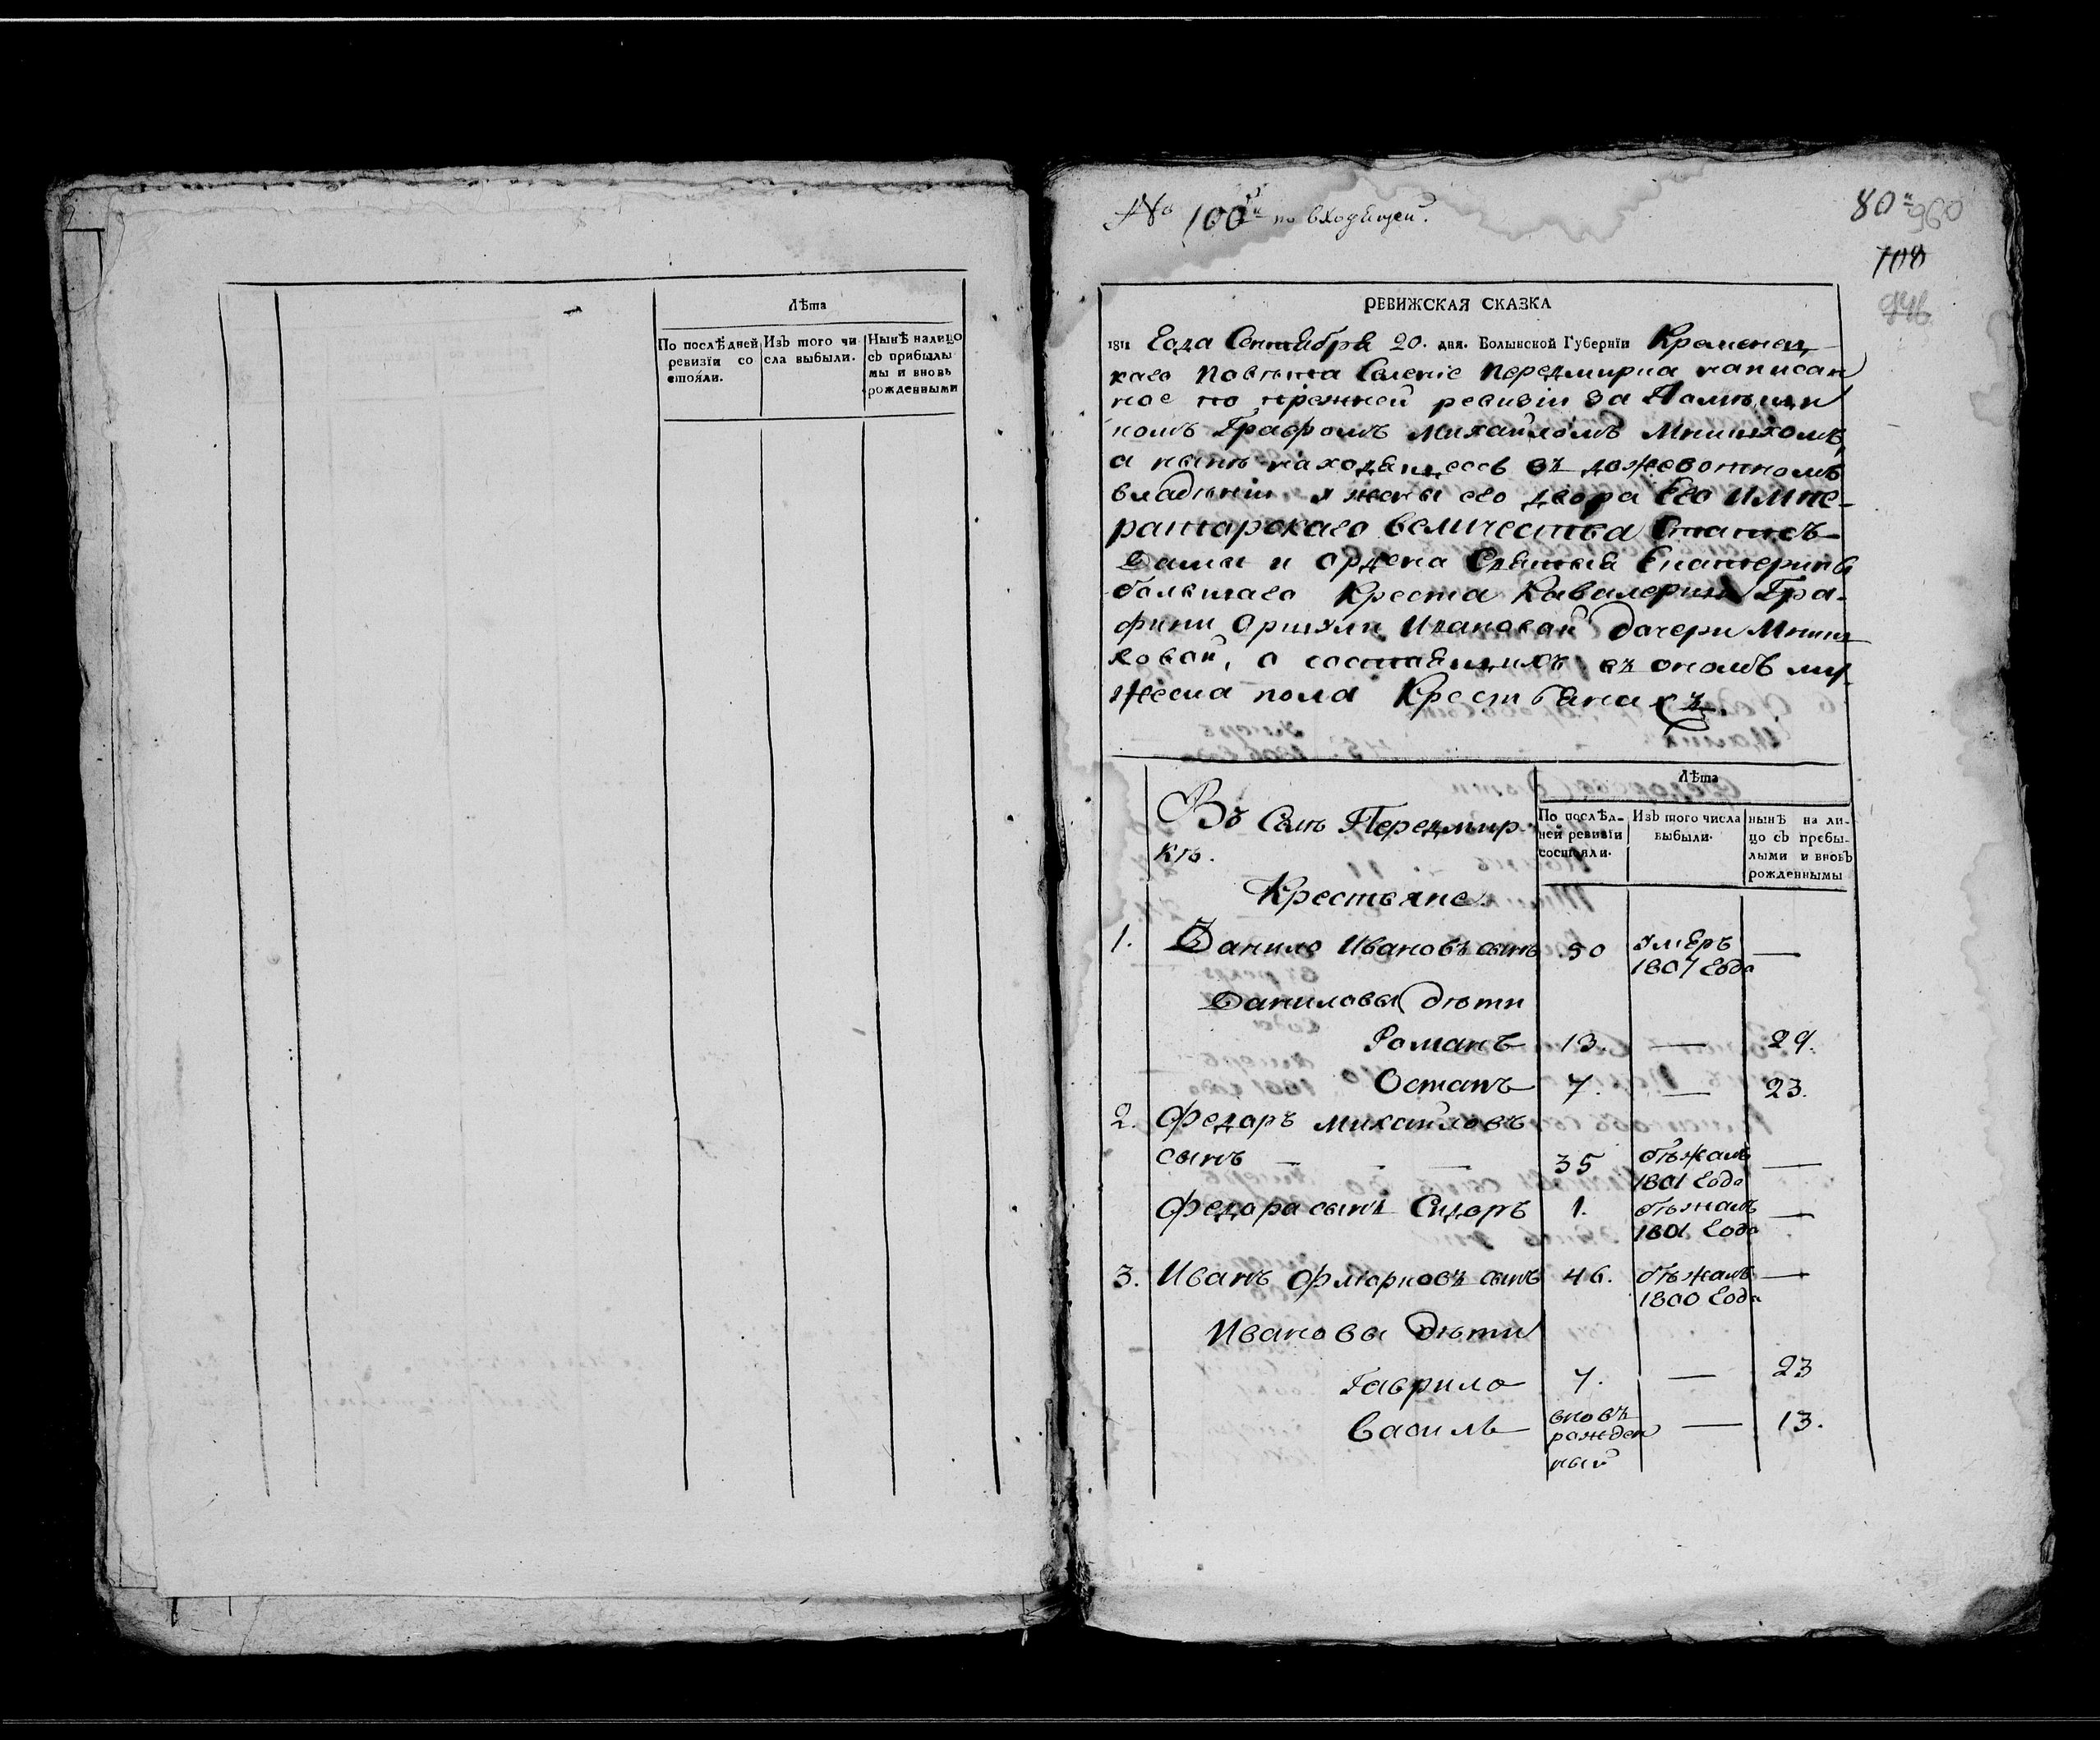 Лѣта
По послѣдней ревизїи со стояли.
Изъ того чи сла выбыли.
Нынѣ налицо съ прибылы ми и вновь рожденными
№ 100й по входящей.
80
960
708
РЕВИЖСКАЯ СКАЗКА
1811 Года Сентября 20. дня. Волынской Губернїи Кременец
каго Повѣта Селенїе Передмирка написан
ное по прежней ревизїи за Помѣщи
комъ Графомъ Михайломъ Мнишкомъ,
а нынѣ находящееся въ дожевотномъ
владѣнїи у жены его двора Его Импе-
раторскаго Величества Статсъ-
Дамы и Ордена Святыя Екатерины
большаго Креста Кавалерии Гра-
фини Оршули Ивановой дочери Мниш
ховой, о состоящихъ въ ономъ му
жеска пола Крестьянахъ.
Лѣта
По послѣд- ней ревизїи состояли.
Изъ того числа выбыли.
нынѣ на ли- цо съ пребы- лыми и вновь рожденнымы
Въ Селѣ Передмир-
кѣ.
Крестьяне.
1. Данило Ивановъ сынъ 50 умеръ 1807 Года —
Даниловы дѣти
Романъ 13. — 29.
Остапъ 7. — 23.
2. Федоръ Михайловъ
сынъ — — — 35 бѣжалъ 1801 Года —
Федора сынъ Сидоръ 1. бѣжалъ 1801 Года —
3. Иванъ Флюрковъ сынъ 46. бѣжалъ 1800 Года —
Ивановы дѣти
Гаврило 7. — 23
Василь вновь рожден ный — 13.